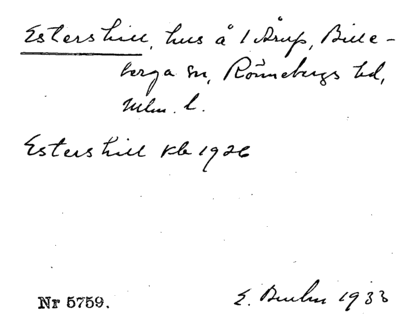 Estershill, hus å 1 Årup, Bille-
berga sn, Rönnebergs hd,
Mlm. l.
Estershill kb 1926
Nr 5759.
E. 1933